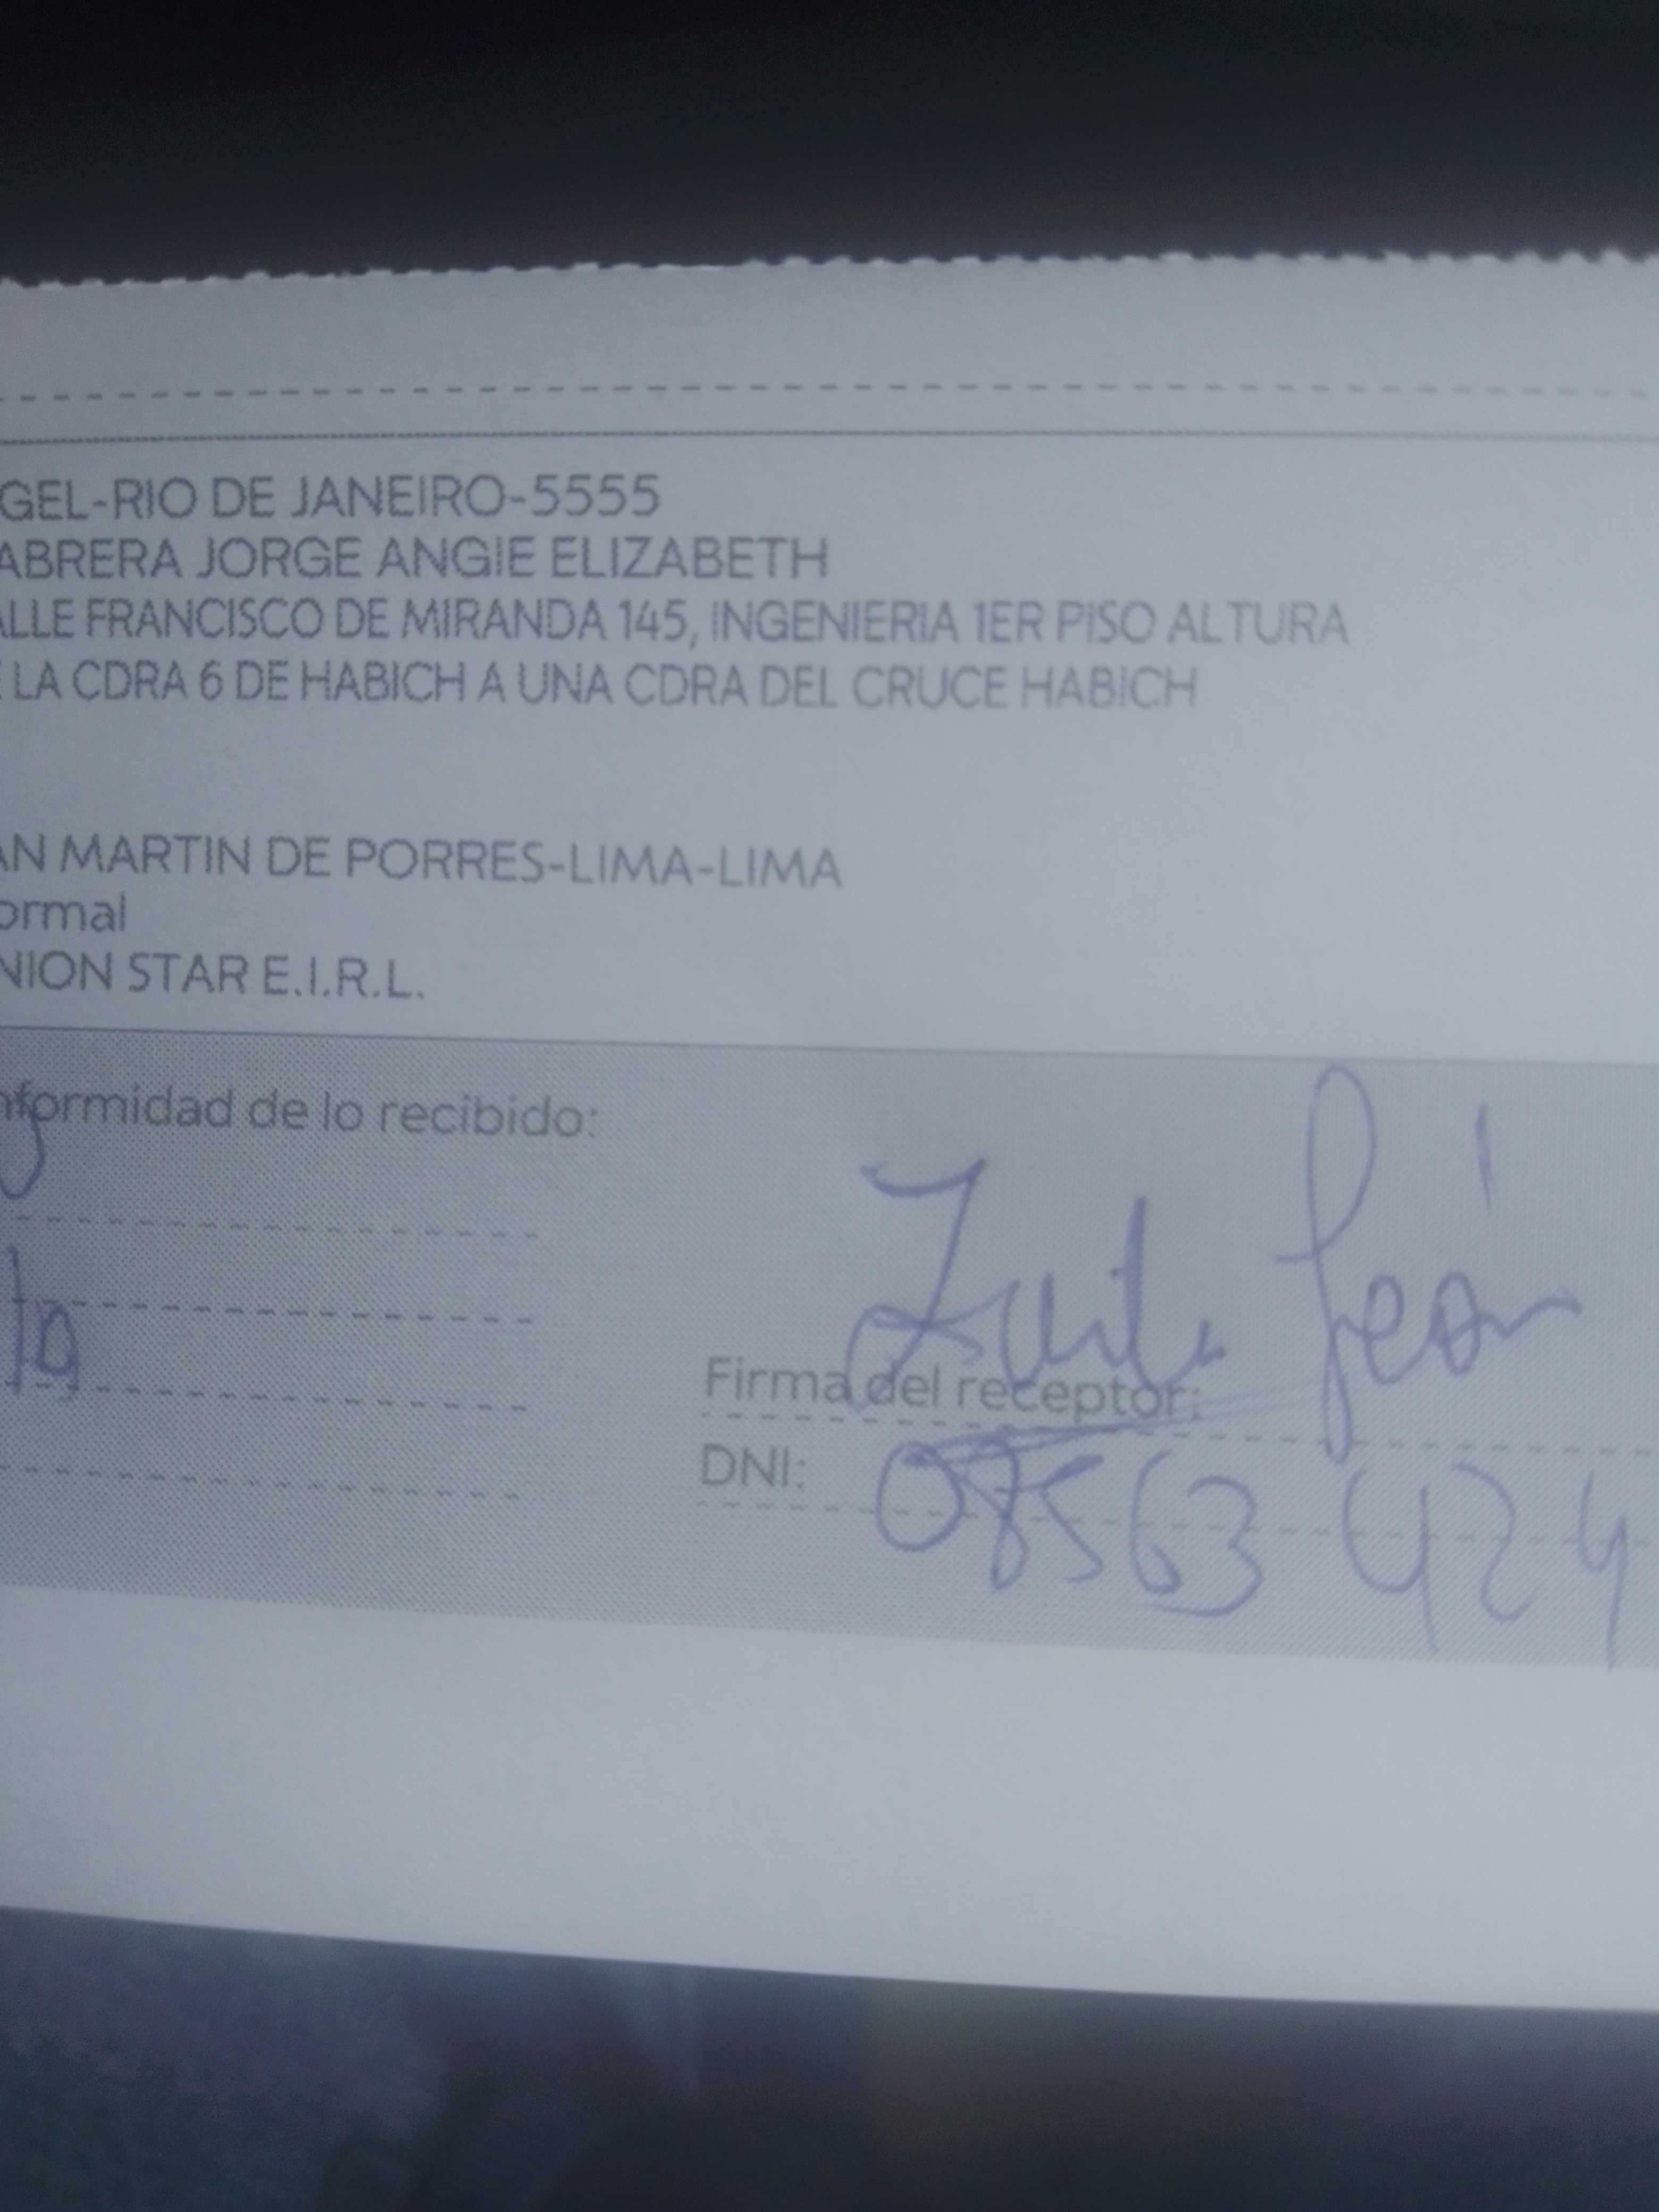 GEL-RIO DE JANEIRO-5555
ABRERA JORGE ANGIE ELIZABETH
ALLE FRANCISCO DE MIRANDA 145, INGENIERIA 1ER PISO ALTURA
LA CDRA 6 DE HABICH A UNA CDRA DEL CRUCE HABICH
AN MARTIN DE PORRES-LIMA-LIMA
ormal
NION STAR E.I.R.L.
nformidad de lo recibido:
León
Firma del receptor:
DNI: 08563424